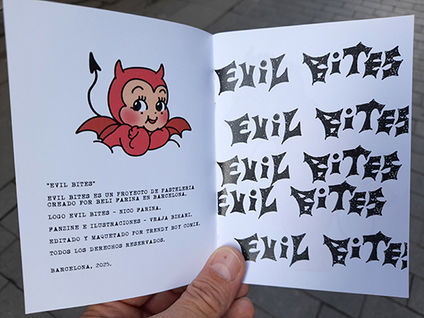 "EVIL BITES"
EVIL BITES ES UN PROYECTO DE PASTELERIA
CREADO POR BELI FARINA EN BARCELONA.
LOGO EVIL BITES - NICO FARINA.
FANZINE E ILUSTRACIONES - VRAJA BIHARI.
EDITADO Y MAQUETADO POR TRENDY BOY COMIX.
TODOS LOS DERECHOS RESERVADOS.
BARCELONA, 2025.
EVIL BITES
EVIL BITES
EVIL BITES
EVIL BITES
EVIL BITES